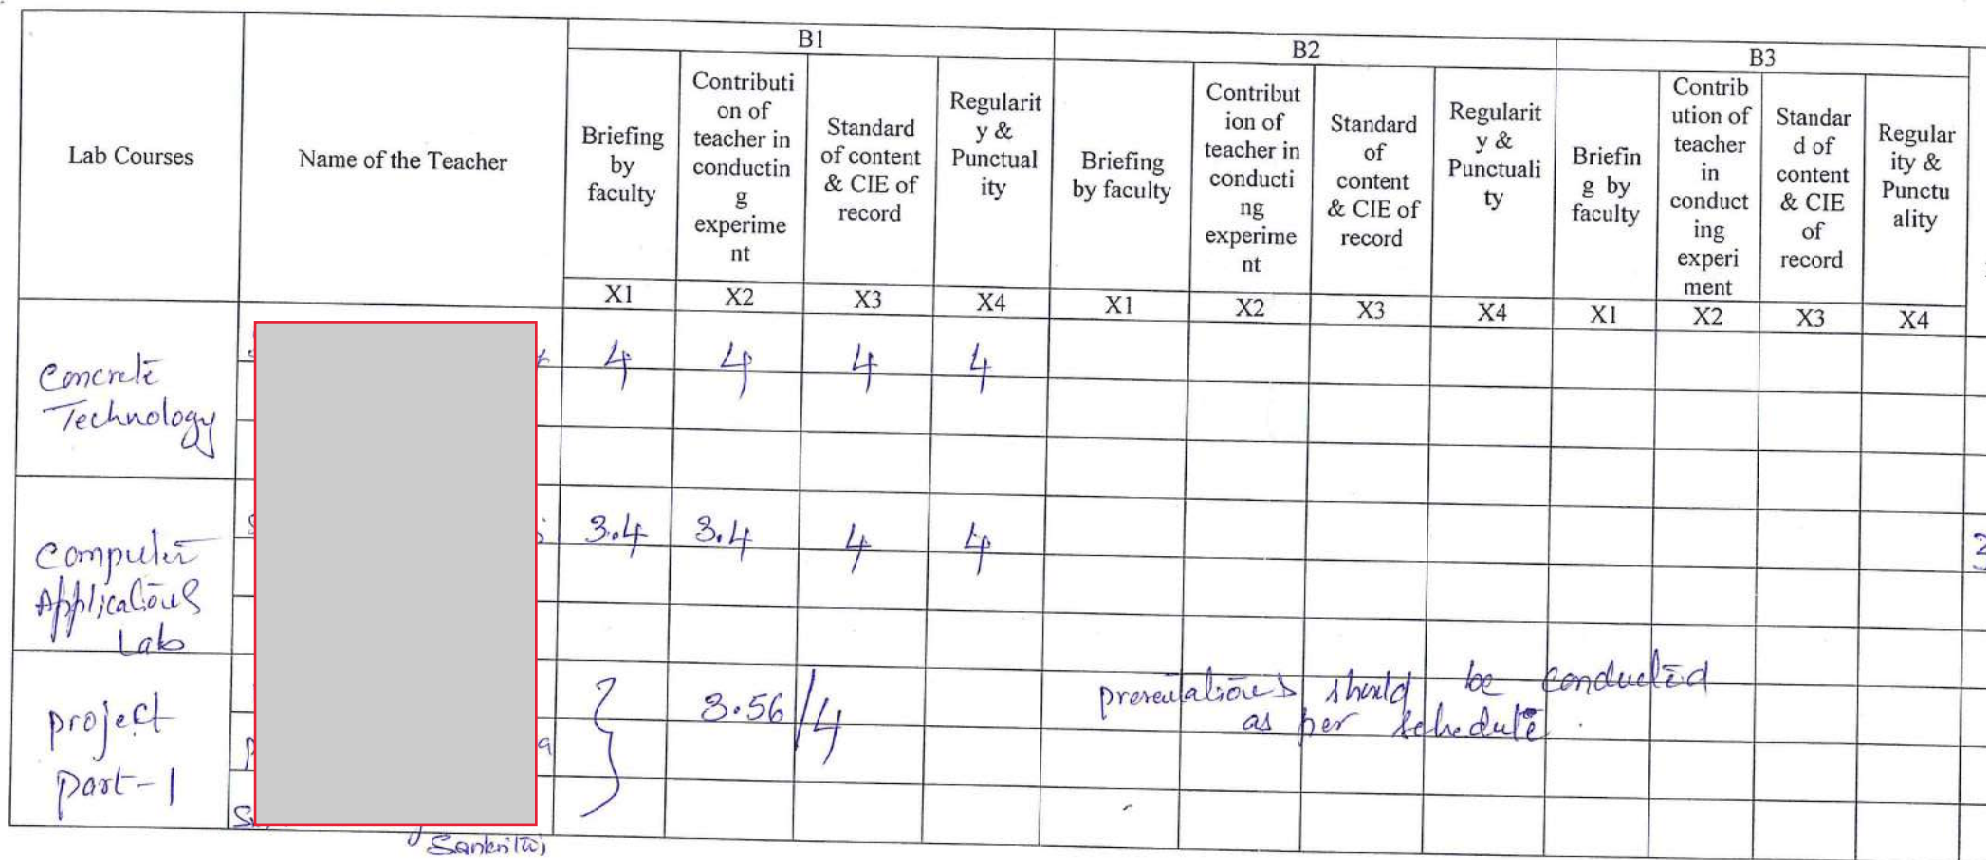 B1 B2 B3
Lab Courses Name of the Teacher
Briefing
by
faculty
Contributi
on of
teacher in
conductin
g
experime
nt
Standard
of content
& CIE of
record
Regularit
y &
Punctual
ity
Briefing
by faculty
Contribut
ion of
teacher in
conducti
ng
experime
nt
Standard
of
content
& CIE of
record
Regularit
y &
Punctuali
ty
Briefin
g by
faculty
Contrib
ution of
teacher
in
conduct
ing
experi
ment
Standar
d of
content
& CIE
of
record
Regular
ity &
Punctu
ality
X1 X2 X3 X4 X1 X2 X3 X4 X1 X2 X3 X4
Concrete
Technology
4 4 4 4
Computer
Applications
Lab
3.4 3.4 4 4
project
part-1
3.56/4
presentations should be conducted
as per schedule.